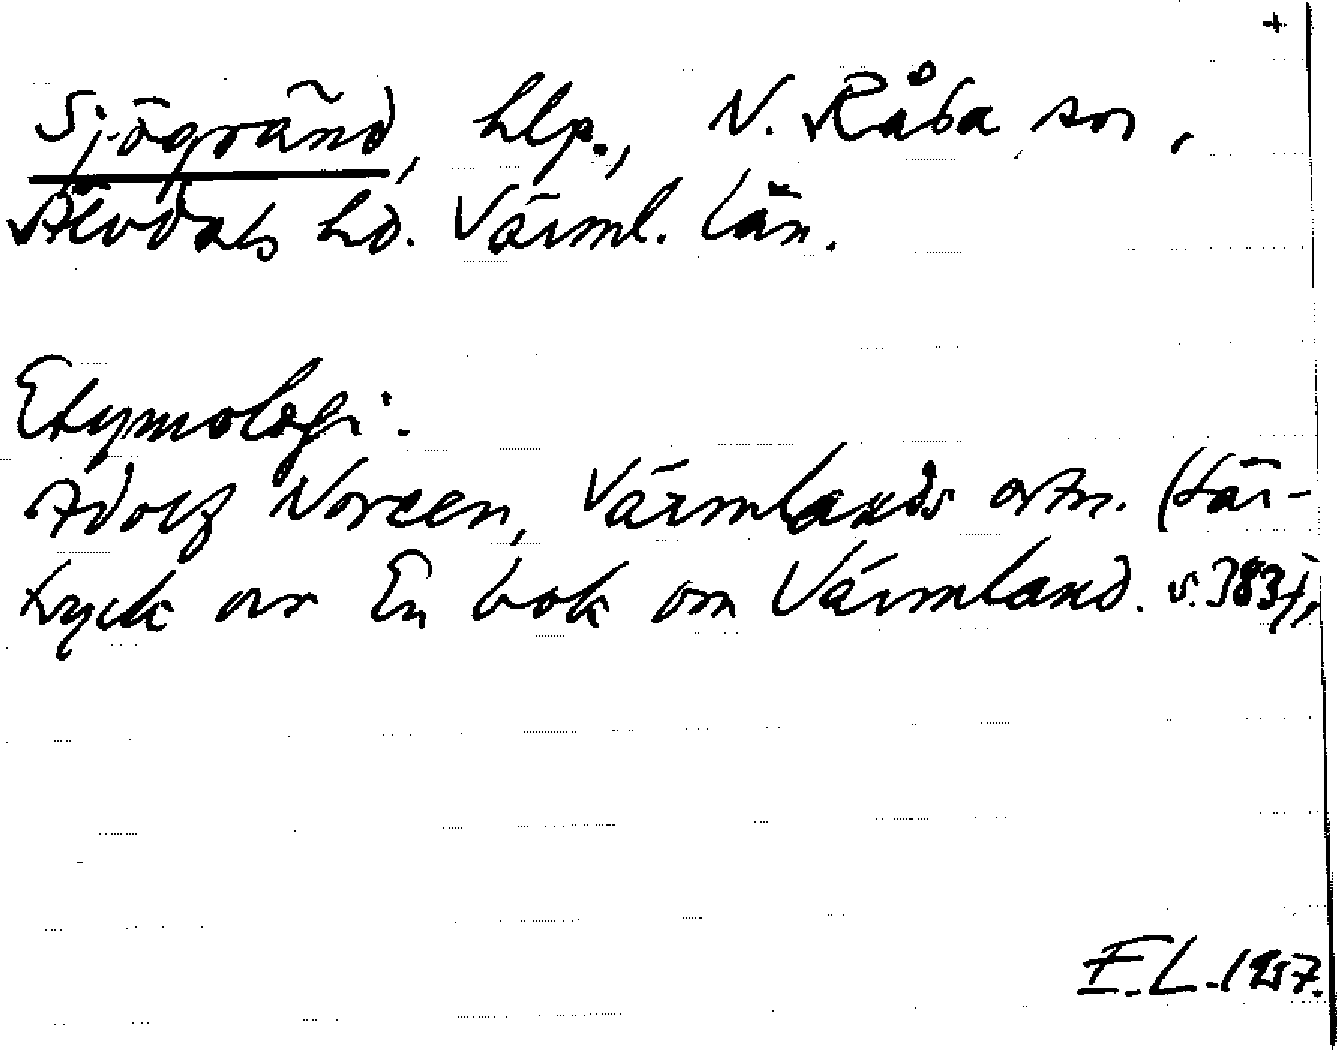 +
Sjögränd, hlp., N. Råda sn,
Älvdals hd. Värml. län.
Etymologi:
Adolf Noreen, Värmlands ortn. (Sär-
tryck ur En bok om Värmland. s. 383),
E.L. 1957.